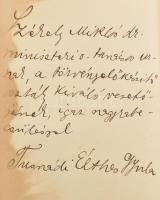 Székely Miklós dr.
miniszteri tanácsos úr-
nak, a törvényelőkészítő
osztály kiváló vezető-
jének, igaz nagyrabe-
csüléssel
Gyula